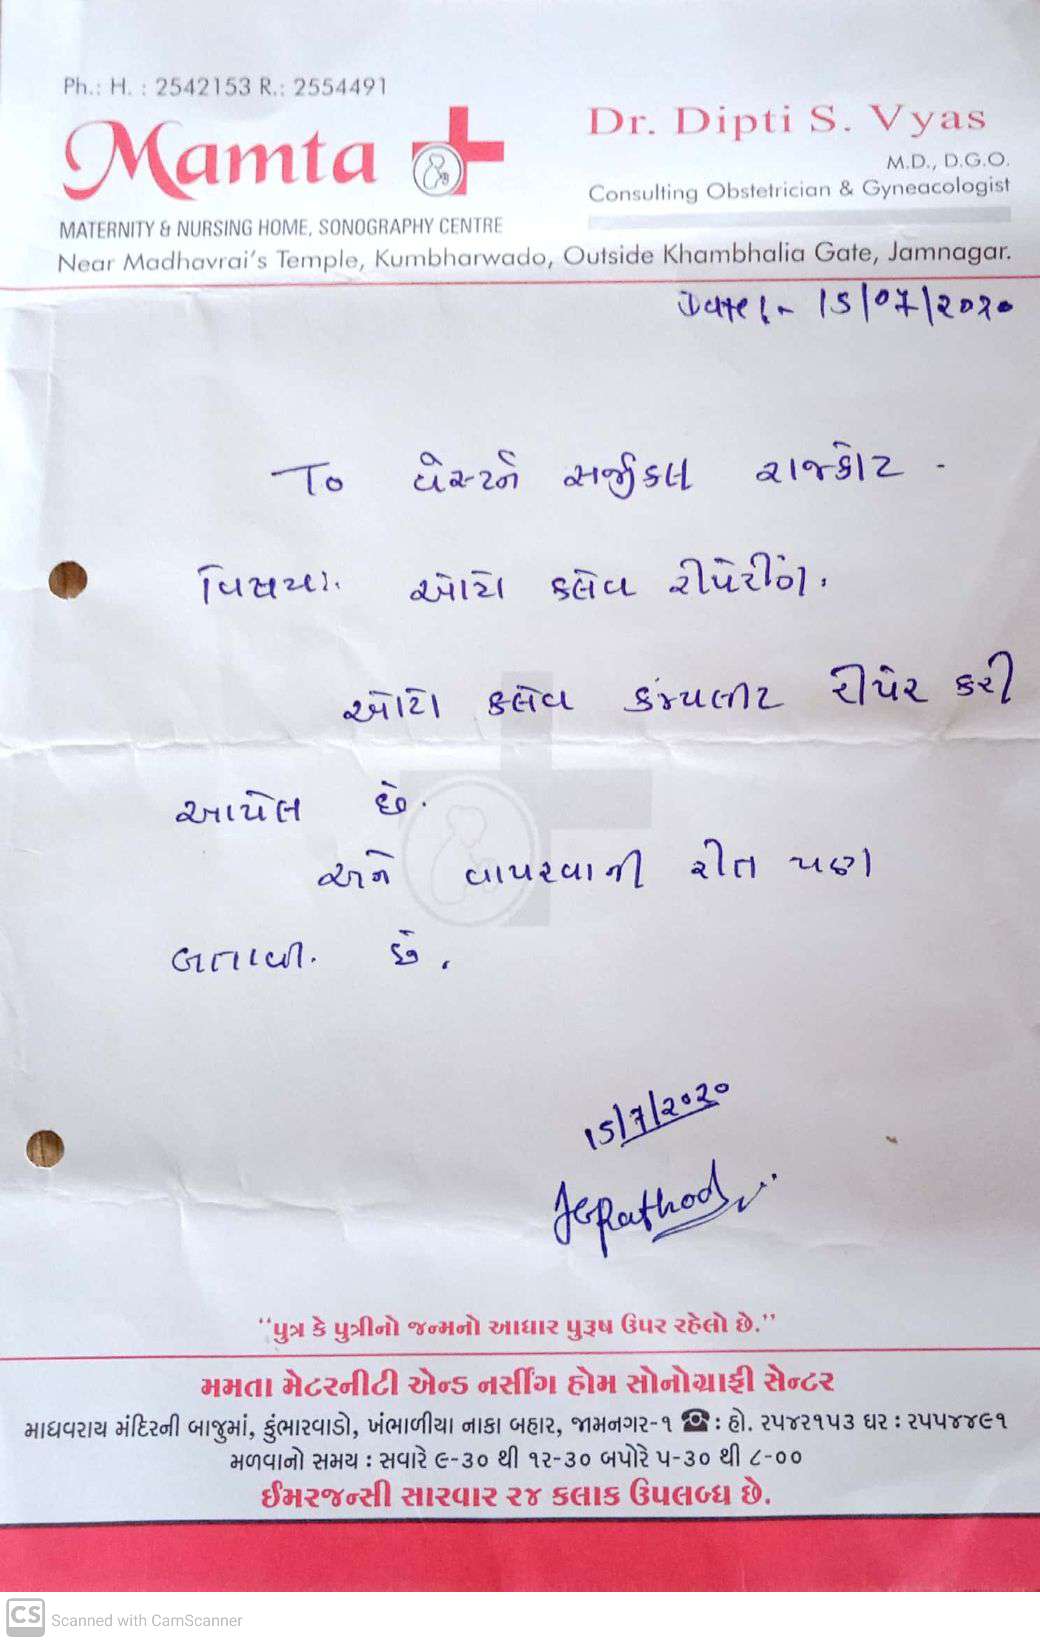 Ph.: H. : 2542153 R.: 2554491
Mamta
Dr. Dipti S. Vyas
M.D., D.G.O.
Consulting Obstetrician & Gyneacologist
MATERNITY & NURSING HOME, SONOGRAPHY CENTRE
Near Madhavrai's Temple, Kumbharwado, Outside Khambhalia Gate, Jamnagar.
Date :- 15/07/2020
To વેસ્ટર્ન સર્જીકલ રાજકોટ -
વિષય: ઓટો ક્લેવ રીપેરીંગ.
ઓટો ક્લેવ કમ્પલીટ રીપેર કરી
આપેલ છે.
અને વાપરવાની રીત પણ
બતાવી. છે.
15/7/2020
JGRathod
"પુત્ર કે પુત્રીનો જન્મનો આધાર પુરૂષ ઉપર રહેલો છે."
મમતા મેટરનીટી એન્ડ નર્સીંગ હોમ સોનોગ્રાફી સેન્ટર
માધવરાય મંદિરની બાજુમાં, કુંભારવાડો, ખંભાળીયા નાકા બહાર, જામનગર-૧ ☎ : હો. ૨૫૪૨૧૫૩ ઘર : ૨૫૫૪૪૯૧
મળવાનો સમય : સવારે ૯-૩૦ થી ૧૨-૩૦ બપોરે ૫-૩૦ થી ૮-૦૦
ઈમરજન્સી સારવાર ૨૪ કલાક ઉપલબ્ધ છે.
CS Scanned with CamScanner